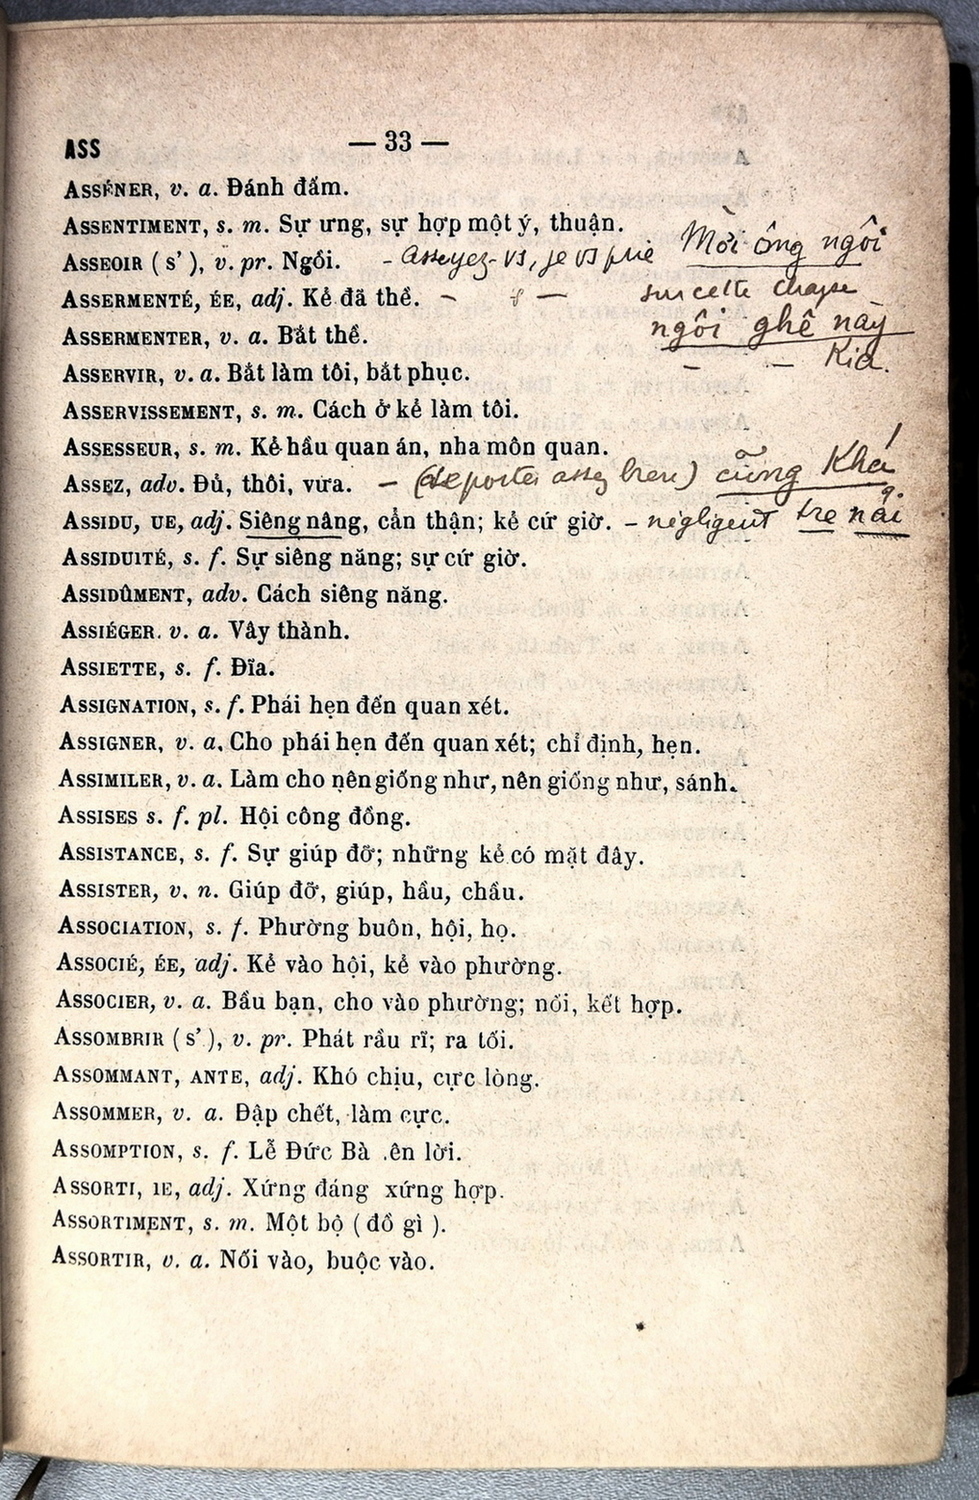 ASS — 33 —
ASSÉNER, v. a. Đánh đấm.
ASSENTIMENT, s. m. Sự ưng, sự hợp một ý, thuận.
ASSEOIR ( s' ), v. pr. Ngồi. - Asseyez-vs, je vs prie Mời ông ngồi
ASSERMENTÉ, ÉE, adj. Kẻ đã thề. — — sur cette chaise
ngồi ghế này
ASSERMENTER, v. a. Bắt thề.
— — Kia.
ASSERVIR, v. a. Bắt làm tôi, bắt phục.
ASSERVISSEMENT, s. m. Cách ở kẻ làm tôi.
ASSESSEUR, s. m. Kẻ hầu quan án, nha môn quan.
ASSEZ, adv. Đủ, thôi, vừa. — (se porter assez bien) cũng Khá
ASSIDU, UE, adj. Siêng nâng, cẩn thận; kẻ cứ giờ. - négligent tre nải
ASSIDUITÉ, s. f. Sự siêng năng; sự cứ giờ.
ASSIDÛMENT, adv. Cách siêng năng.
ASSIÉGER. v. a. Vây thành.
ASSIETTE, s. f. Đĩa.
ASSIGNATION, s. f. Phái hẹn đến quan xét.
ASSIGNER, v. a. Cho phái hẹn đến quan xét; chỉ định, hẹn.
ASSIMILER, v. a. Làm cho nên giống như, nên giống như, sánh.
ASSISES s. f. pl. Hội công đồng.
ASSISTANCE, s. f. Sự giúp đỡ; những kẻ có mặt đây.
ASSISTER, v. n. Giúp đỡ, giúp, hầu, chầu.
ASSOCIATION, s. f. Phường buôn, hội, họ.
ASSOCIÉ, ÉE, adj. Kẻ vào hội, kẻ vào phường.
ASSOCIER, v. a. Bầu bạn, cho vào phường; nối, kết hợp.
ASSOMBRIR ( s' ), v. pr. Phát rầu rĩ; ra tối.
ASSOMMANT, ANTE, adj. Khó chịu, cực lòng.
ASSOMMER, v. a. Đập chết, làm cực.
ASSOMPTION, s. f. Lễ Đức Bà .ên lời.
ASSORTI, IE, adj. Xứng đáng xứng hợp.
ASSORTIMENT, s. m. Một bộ ( đồ gì ).
ASSORTIR, v. a. Nối vào, buộc vào.